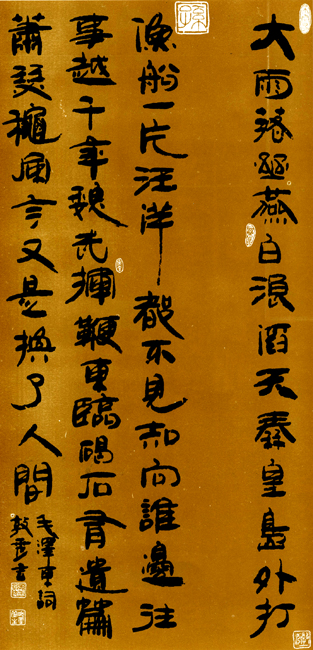 大雨落幽燕白浪滔天秦皇島外打
漁船一片汪洋都不見知向誰邊往
事越千年魏武揮鞭東臨碣石有遺篇
蕭瑟秋風今又是換了人間
毛澤東詞
書